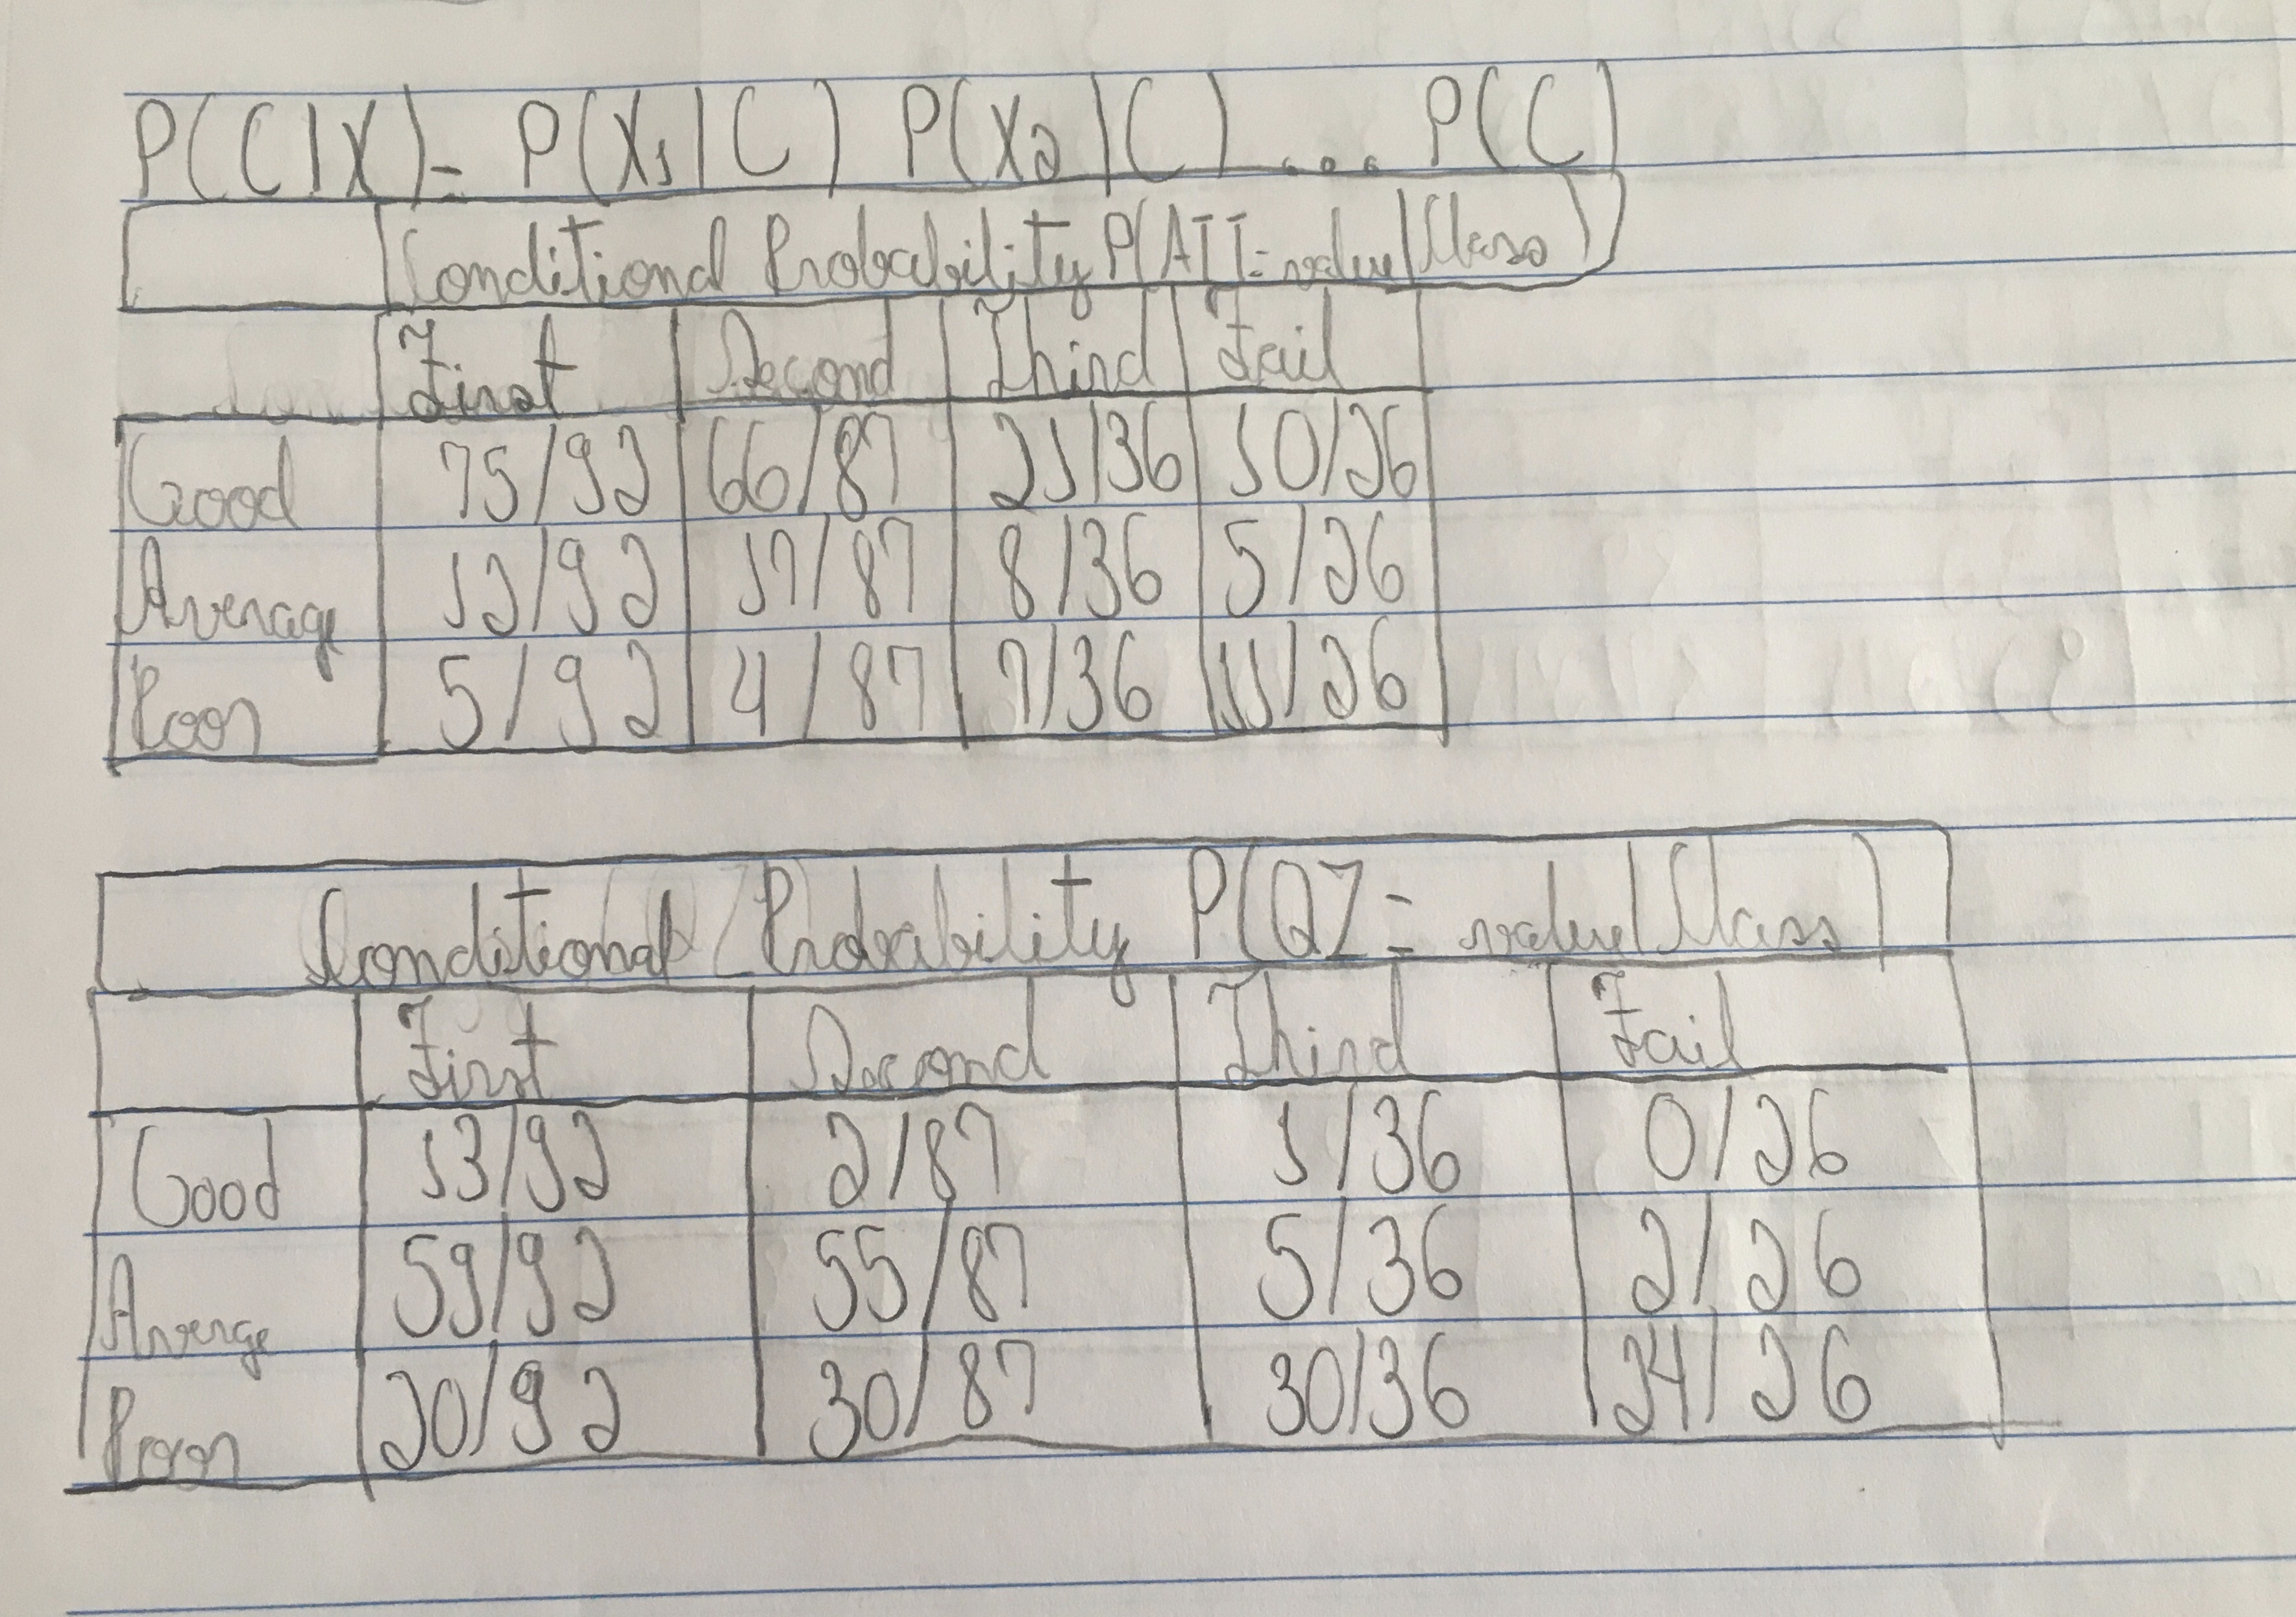 P(C|X)= P(X1|C) P(X2|C)... P(C)
Conditional Probability P(ATT=value|Class)
First Second Third Fail
Good 75/92 66/87 21/36 10/26
Average 12/92 17/87 8/36 5/26
Poor 5/92 4/87 7/36 11/26
Conditional Probability P(QZ= value|Class)
First Second Third Fail
Good 13/92 2/87 1/36 0/26
Averge 59/92 55/87 5/36 2/26
Poor 20/92 30/87 30/36 24/26